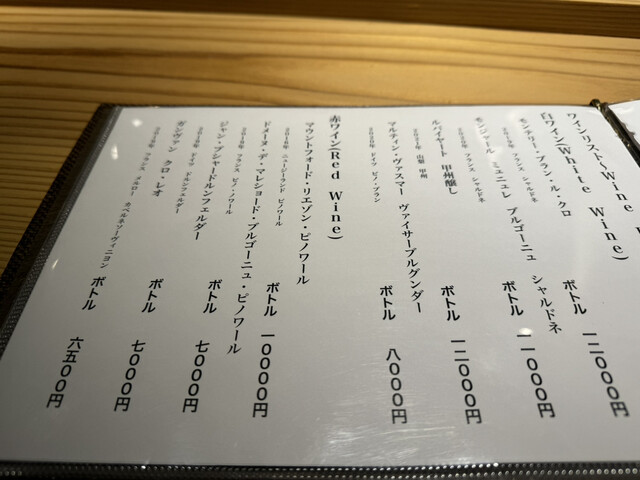 ワインリスト(Wine
白ワイン(White Wine)
モンテリー・ブラン・ル・クロ ボトル 一二〇〇〇円
フランス シャルドネ
モンジャール ミュニュレ ブルゴーニュ シャルドネ ボトル 一一〇〇〇円
フランス シャルドネ
ルバイヤート 甲州醸し ボトル 一二〇〇〇円
山梨 甲州
マルティン・ヴァスマー ヴァイサーブルグンダー ボトル 八〇〇〇円
ドイツ ピノ・ブラン
赤ワイン(Red Wine)
マウントフォード・リエゾン・ピノワール ボトル 一〇〇〇〇円
ニュージーランド ピノワール
ドメーヌ・デ・マレショード・ブルゴーニュ・ピノワール
フランス ピノ・ノワール
ジャン・ブシャードルンフェルダー ボトル 七〇〇〇円
ドイツ ドルンフェルダー
ガンヴァン クロ・レオ ボトル 七〇〇〇円
フランス メルロー カベルネソーヴィニヨン
ボトル 六五〇〇円